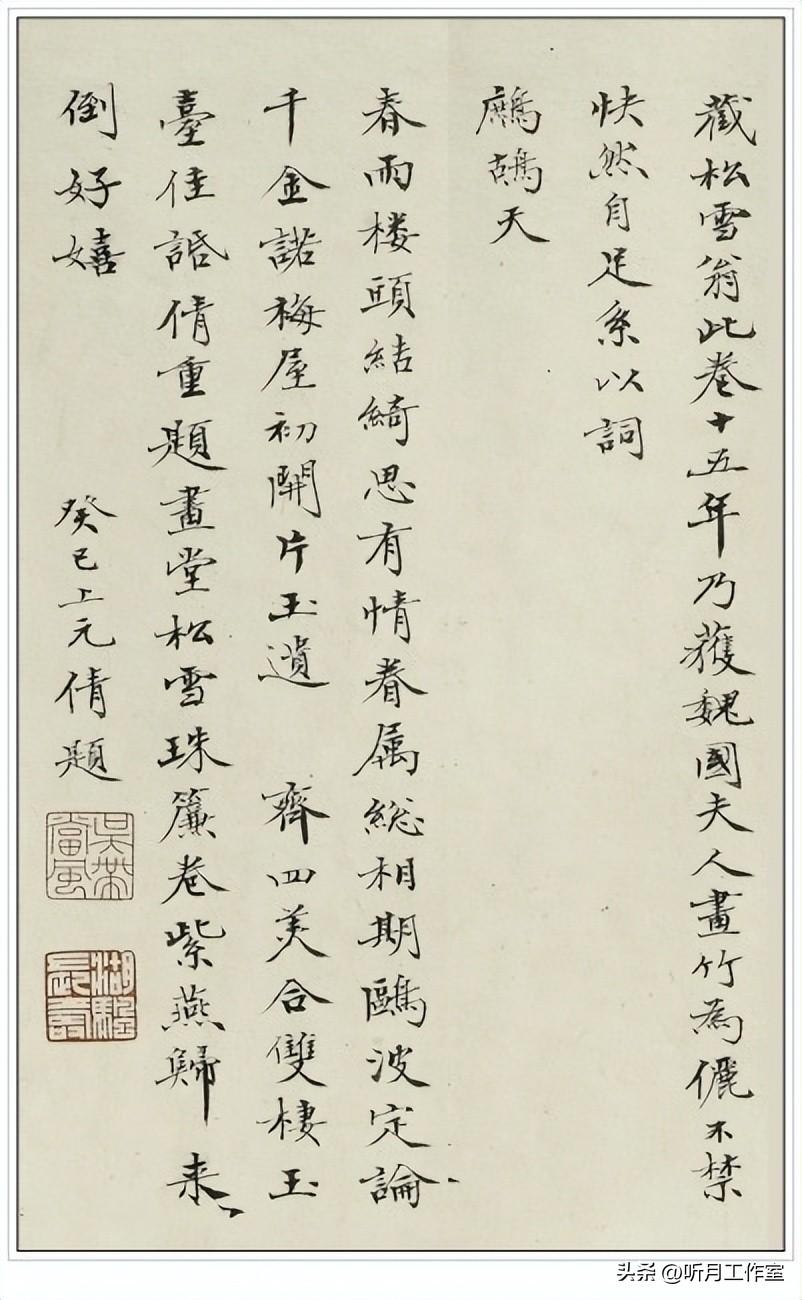 藏松雪翁此卷十五年乃獲魏國夫人畫竹為儷不禁
快然自足系以詞
鷓鴣天
春雨楼頭結綺思有情眷属總相期鷗波定論
千金諾梅屋初開片玉遺 齊四美合雙棲玉
臺佳話倩重題畫堂松雪珠簾卷紫燕歸来
倒好嬉
癸巳上元倩題
吳帶當風
湖騣長壽
头条 @听月工作室